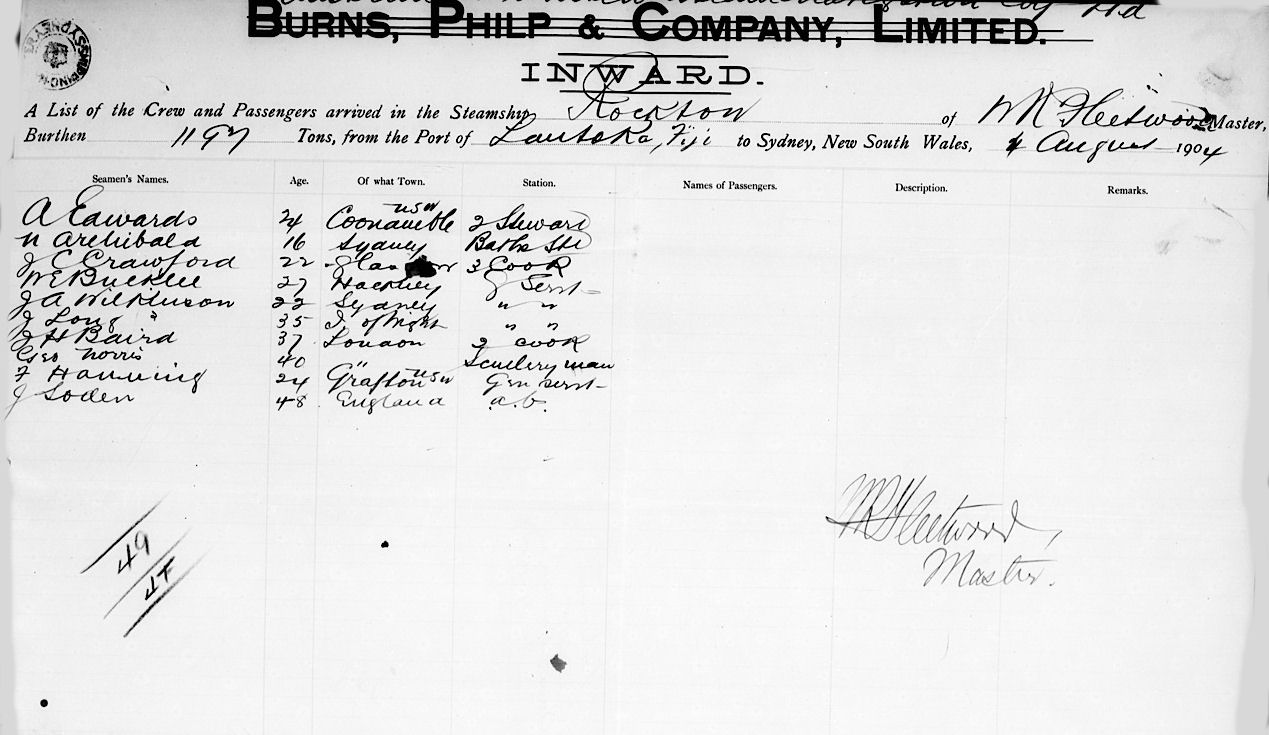 Navigation Coy Ltd
BURNS, PHILP & COMPANY, LIMITED.
INWARD.
A List of the Crew and Passengers arrived in the Steamship Rockton of W R Fleetwood Master,
Burthen 1197 Tons, from the Port of Lautoka, Fiji to Sydney, New South Wales, 4 August 1904
Seamen's Names. Age. Of what Town. Station. Names of Passengers. Description. Remarks.
A Edwards 24 Coonamble NSW 2 Steward
N Archibald 16 Sydney Baths Std
J C Crawford 22 Glasgow 3 Cook
W E Bucklee 27 Hackney G Servt
J A Wilkinson 22 Sydney " "
J Long 35 I. of Wight " "
J H Baird 37 London 2 Cook
Geo Norris 40 " Scullery man
F Hanning 24 Grafton NSW Gen Servt
J Soden 48 England a.b.
W R Fleetwood,
Master.
49